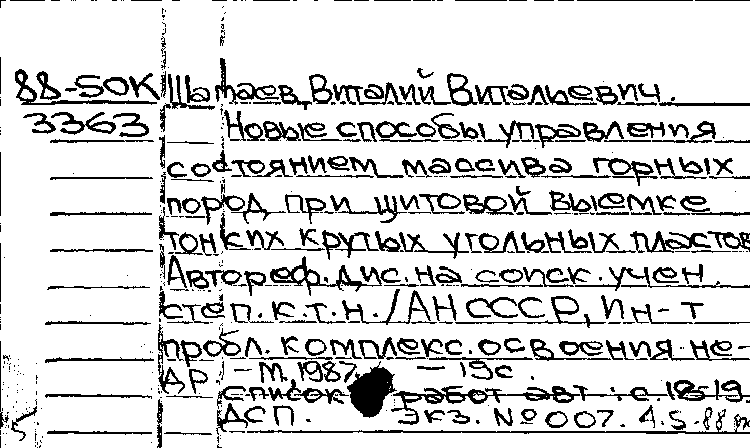 88-50К Шатаев, Виталий Витальевич.
3363 Новые способы управления
состоянием массива горных
пород при щитовой выемке
тонких крутых угольных пластов
Автореф. дис. на соиск. учен.
степ. к.т.н. / АН СССР, Ин-т
пробл. комплекс. освоения не-
др. - М., 1987. - 19с.
Список работ авт.: с. 18-19.
ДСП. Экз. № 007. 4.5.88